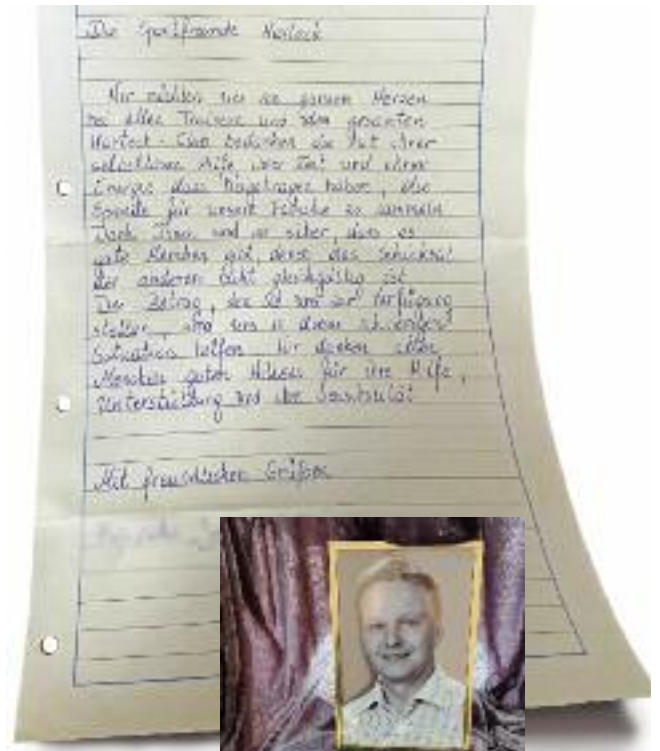 Die Sportfreunde
Wir möchten uns von ganzem Herzen
bei allen Trainern und dem gesamten
bedanken die mit ihrer
selbstlosen Hilfe, ihrer Zeit und ihrer
Energie dazu beigetragen haben, die
Spende für unsere Familie zu sammeln
Dank Ihnen sind wir sicher, dass es
gute Menschen gibt, denen das Schicksal
der anderen nicht gleichgültig ist
Der Betrag, den Sie uns zur Verfügung
stellen, wird uns in dieser schwierigen
Situation helfen Wir danken allen
Menschen guten Willens für ihre Hilfe,
Unterstützung und ihre Sensibilität
Mit freundlichen Grüßen